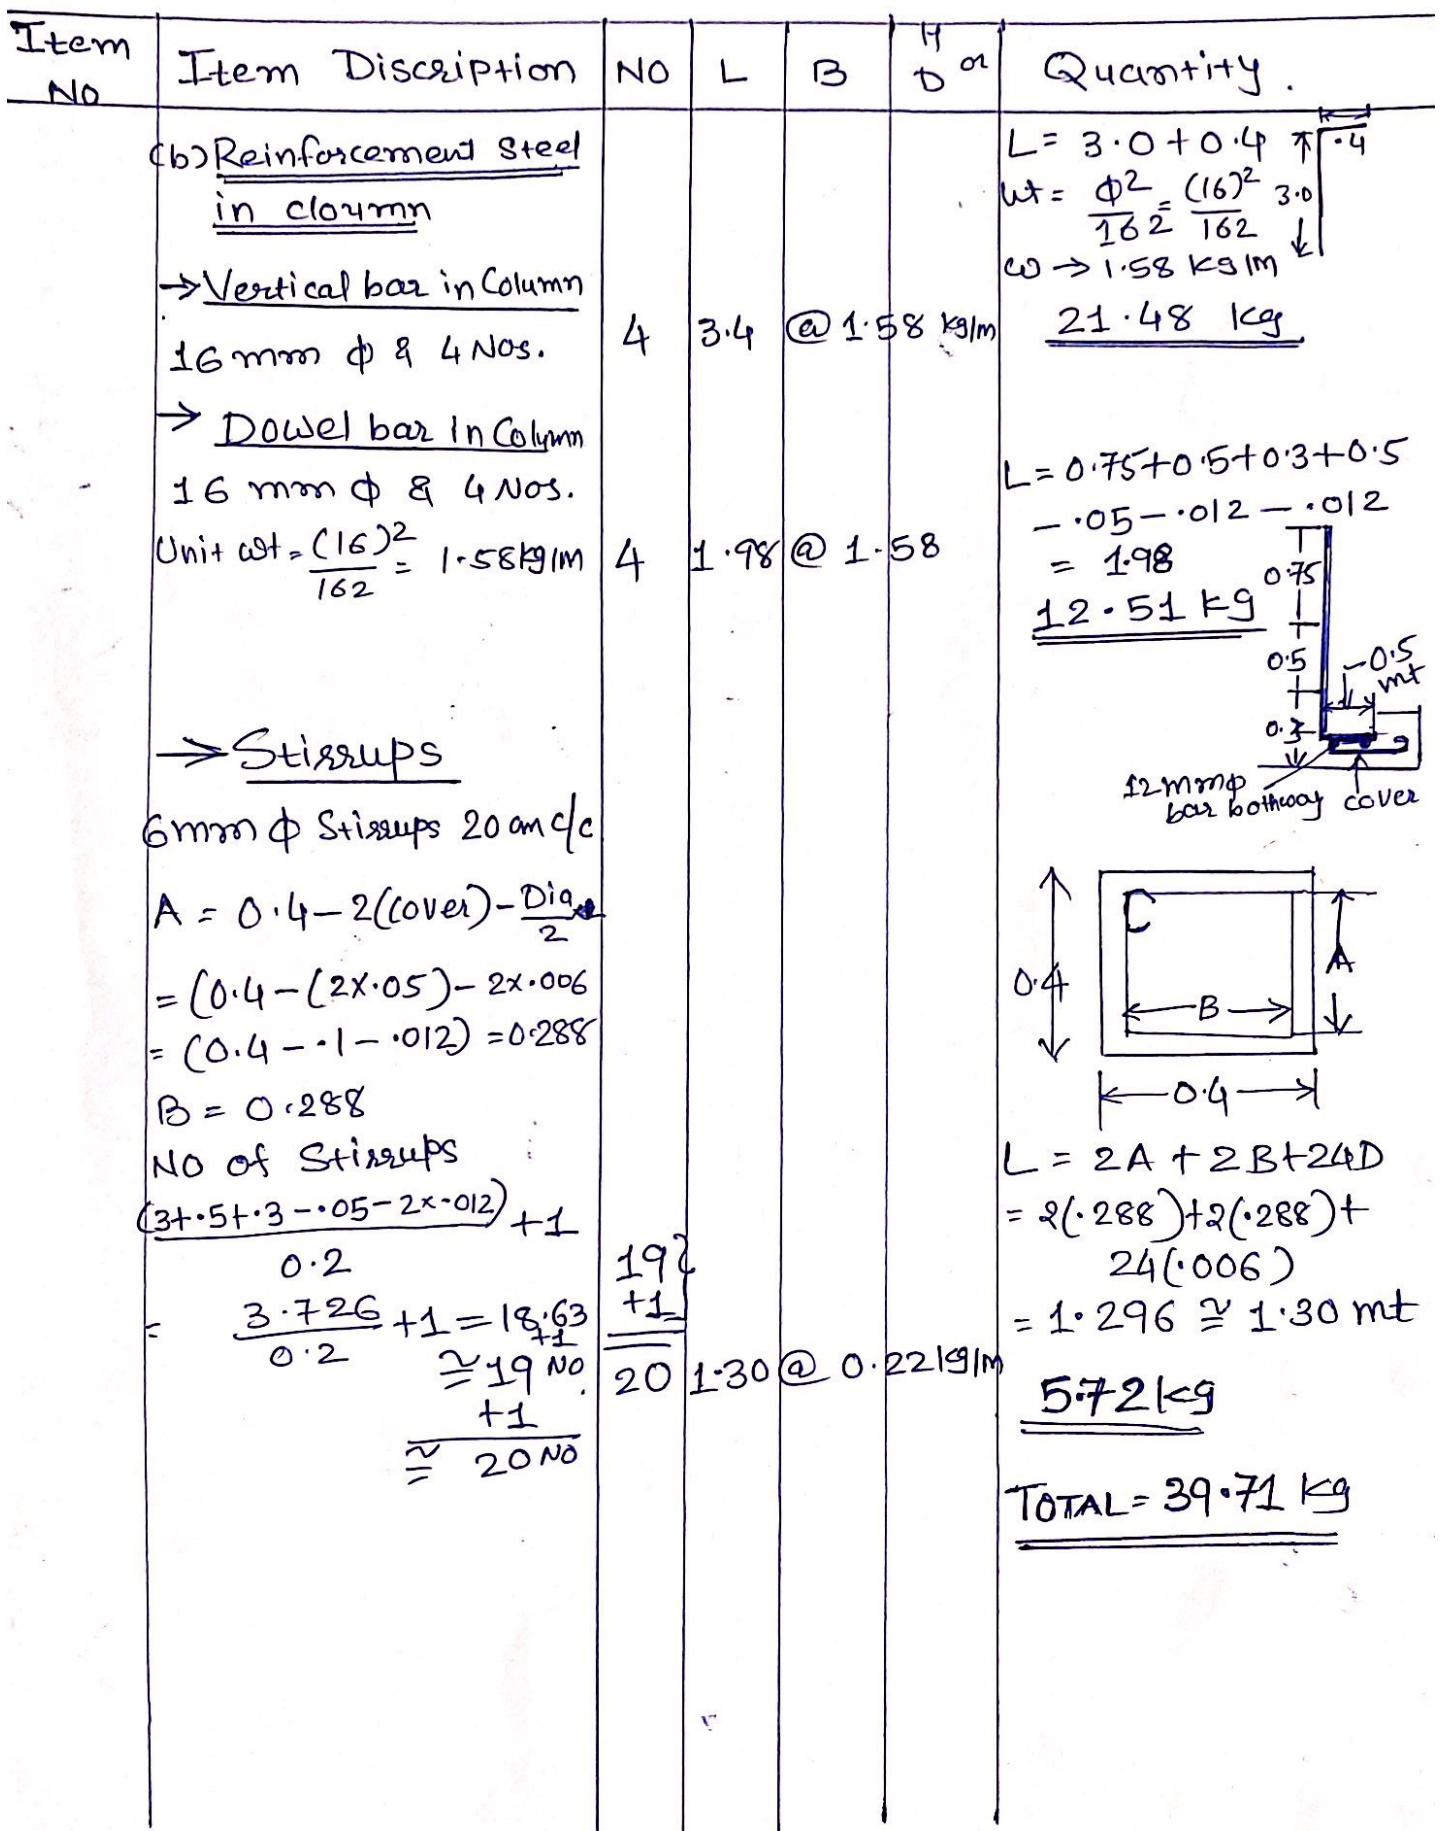 Item No
Item Discription
NO
L
B
H or D
Quantity.
(b) Reinforcement Steel
in cloumn
L = 3.0+0.4
.4
wt = ϕ²/162 = (16)²/162
3.0
ω → 1.58 kg/m
→ Vertical bar in Column
16 mm ϕ & 4 Nos.
4
3.4
@ 1.58 kg/m
21.48 kg
→ Dowel bar in Column
16 mm ϕ & 4 Nos.
Unit wt = (16)²/162 = 1.58kg/m
4
1.98
@ 1.58
L = 0.75+0.5+0.3+0.5
-.05-.012-.012
= 1.98
12.51 kg
0.75
0.5
0.3
0.5
mt
12mmϕ
bar bothway
cover
→ Stirrups
6mm ϕ Stirrups 20 cm c/c
A = 0.4-2(cover)-Dia/2
= (0.4-(2x.05)-2x.006
= (0.4-.1-.012) = 0.288
B = 0.288
0.4
A
B
0.4
No of Stirrups
(3+.5+.3-.05-2x.012)/0.2 +1
= 3.726/0.2 +1 = 18.63
+1
≅ 19 NO.
+1
≅ 20 NO
19}
+1
20
1.30
@ 0.22kg/m
L = 2A + 2B+24D
= 2(.288)+2(.288)+
24(.006)
= 1.296 ≅ 1.30 mt
5.72 kg
TOTAL = 39.71 kg